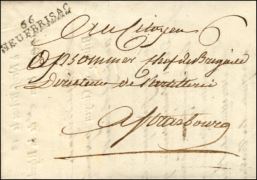 66
NEUFBRISAC
Au Citoyen
Sommer chef de Brigade
Directeur de l'artillerie
a Strasbourg